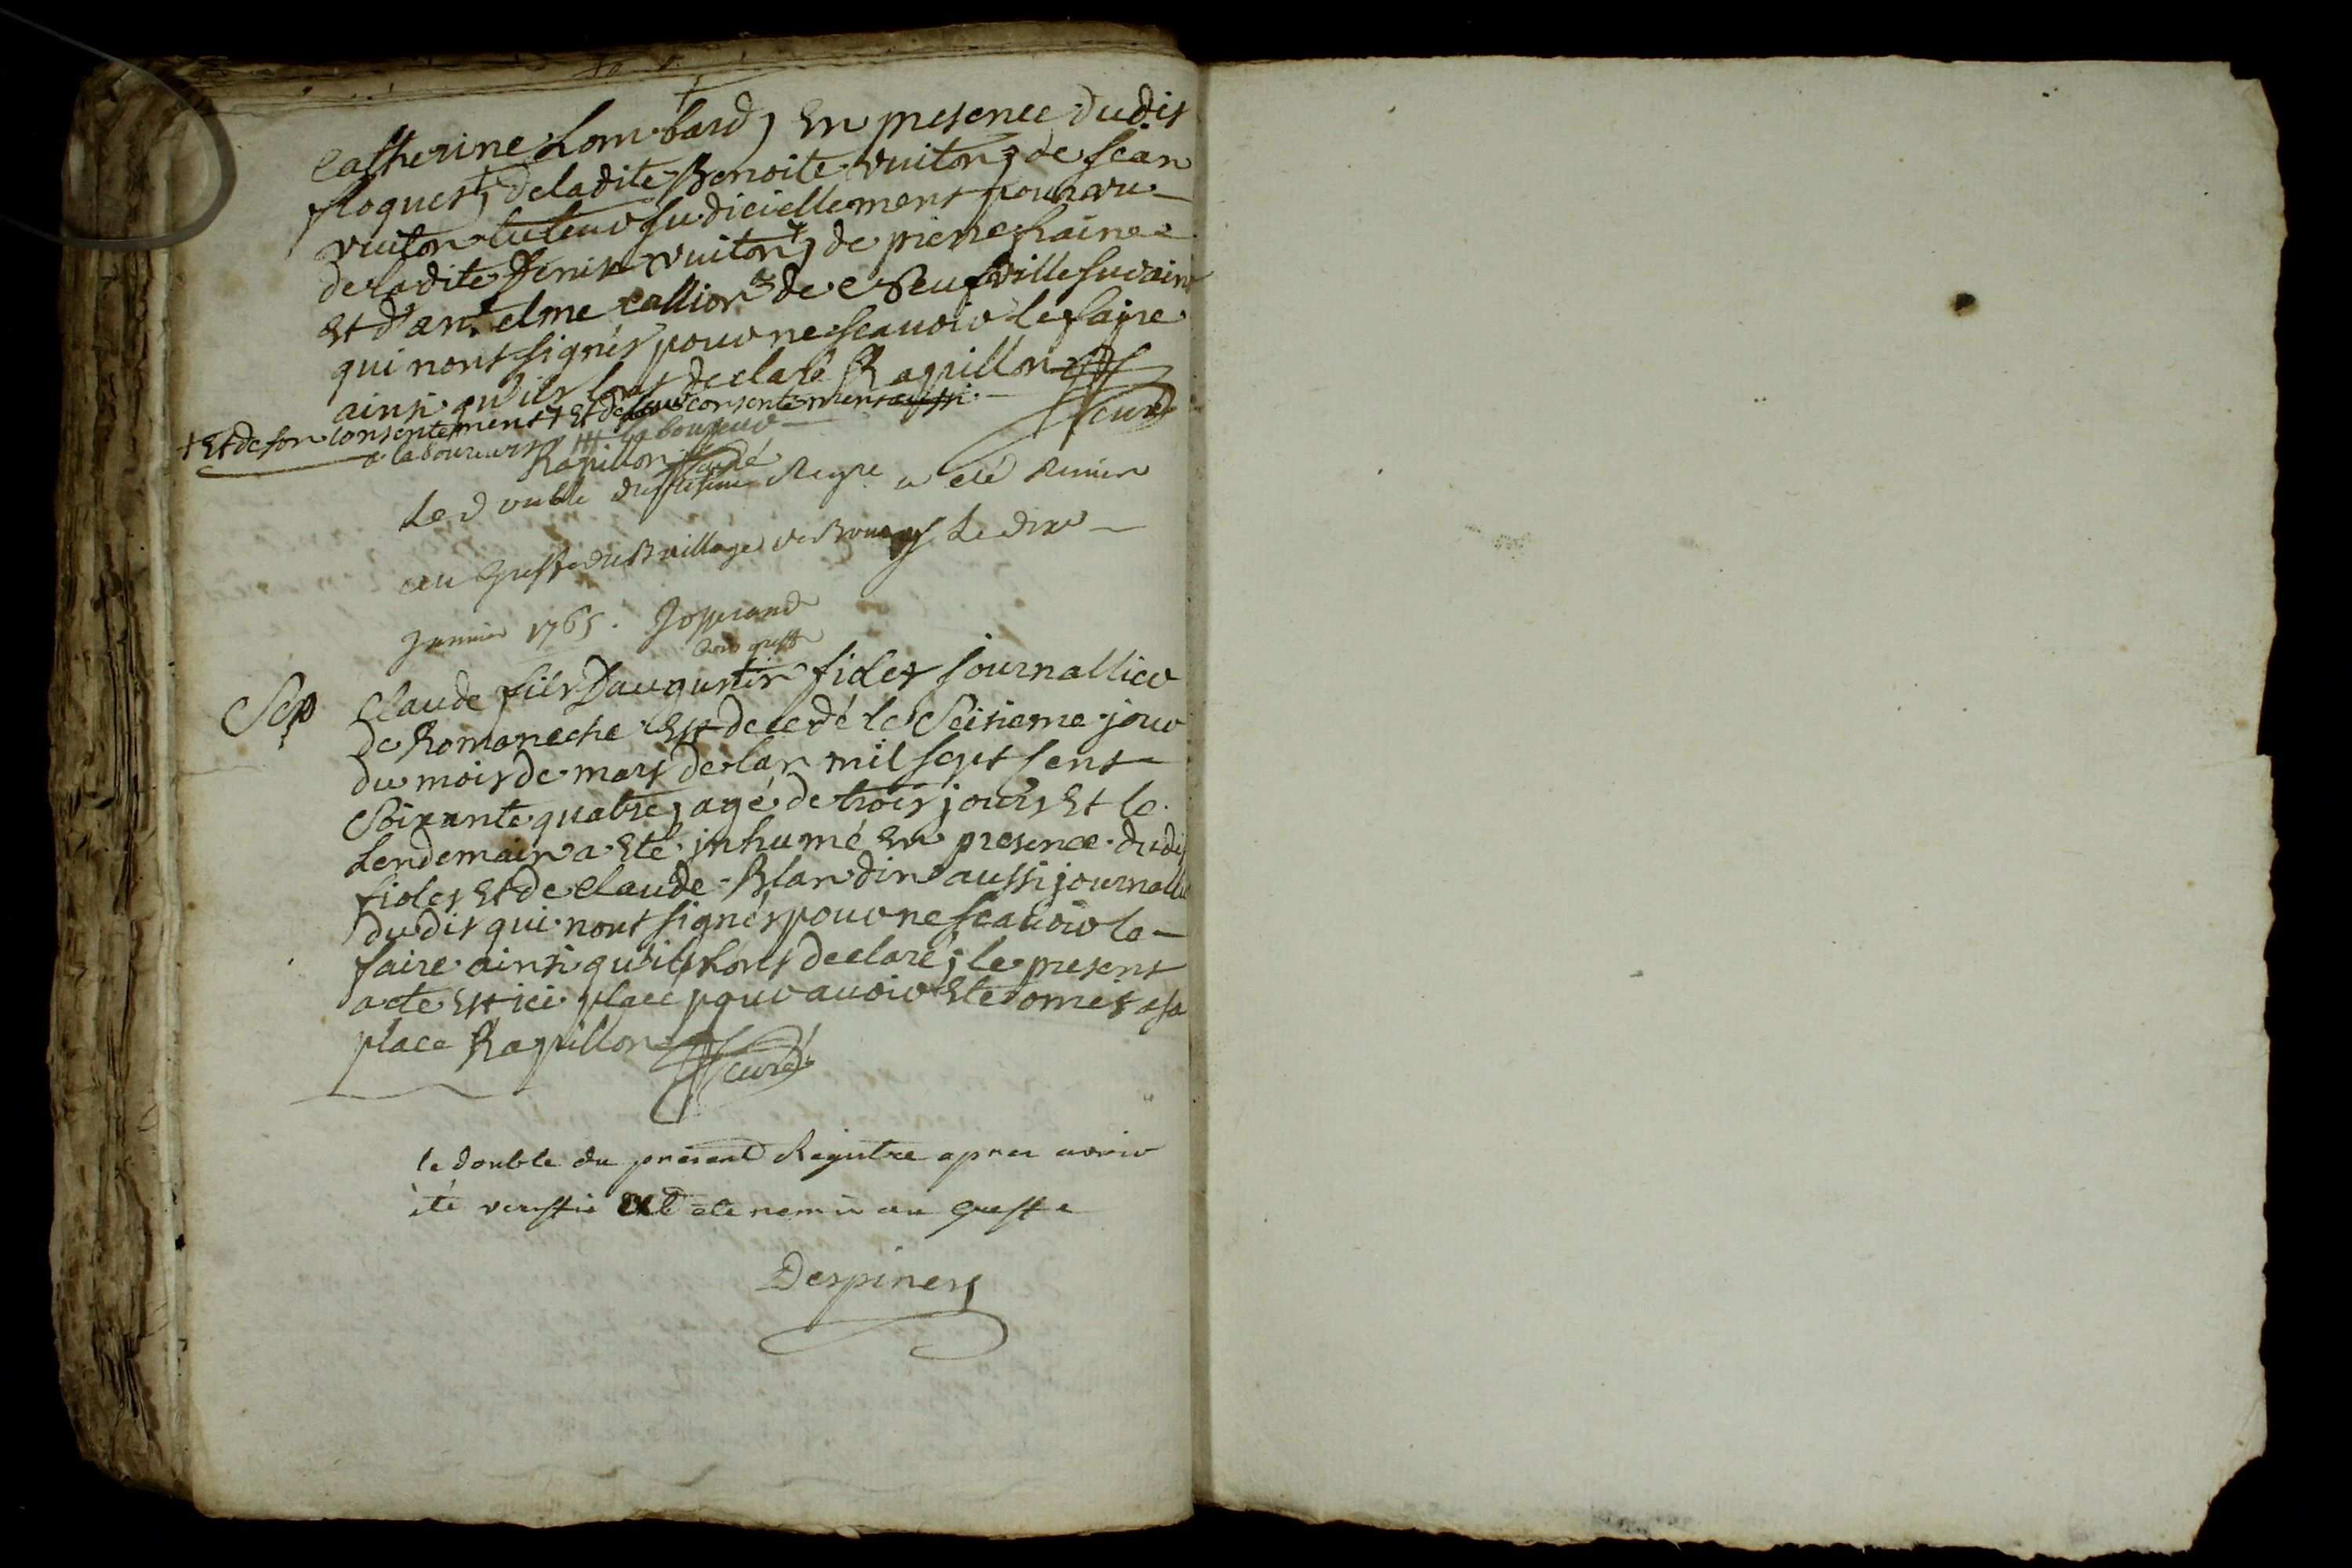 Catherine Lombard, En presence dudit
floquet, de ladite Benoite vuiton, de jean
vuiton tuteur judiciellement pourvu
de ladite Denise vuiton, de pierre
Et d'antelme callion de Neufville
qui nont signés pour ne scauoir le faire
ainsi qu'ils lont declaré Rapillon
curé
+ Et de son consentement + Et de leur consentement aussi
a laboureurs laboureur
Rapillon curé
Le double du present Regre a été Remis
au Greffe du Bailliage de Bourg Le dix
Janvier 1765. Jopperand
Sep Claude fils D'augustin fidet journallier
de Romaneche Est decedé le Seisieme jour
du mois de mars de lan mil sept sent
Soixante quatre, agé de trois jours Et le
Lendemain a Eté inhumé En presence dudit
fidet Et de Claude Blandin aussi journallier
dudit qui nont signés pour ne scauoir le
faire ainsi qu'ils lont declaré; le present
acte Est ici placé pour auoir Eté omis a sa
place Rapillon
curé
le double du présent Registre apres avoir
été verifié a été remis au Greffe
Despiney